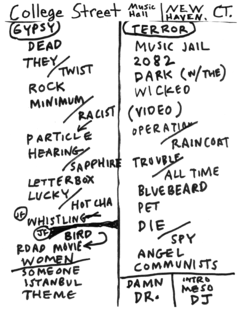 College Street Music Hall | NEW HAVEN, CT.
GYPSY
DEAD
THEY / TWIST
ROCK
MINIMUM / RACIST
PARTICLE
HEARING / SAPPHIRE
LETTERBOX
LUCKY / HOT CHA
WHISTLING
BIRD
ROAD MOVIE
WOMEN
SOMEONE
ISTANBUL
THEME
TERROR
MUSIC JAIL
2082
DARK (W/THE)
WICKED
(VIDEO)
OPERATION / RAINCOAT
TROUBLE / ALL TIME
BLUEBEARD
PET
DIE / SPY
ANGEL
COMMUNISTS
DAMN
DR.
INTRO
MESO
DJ